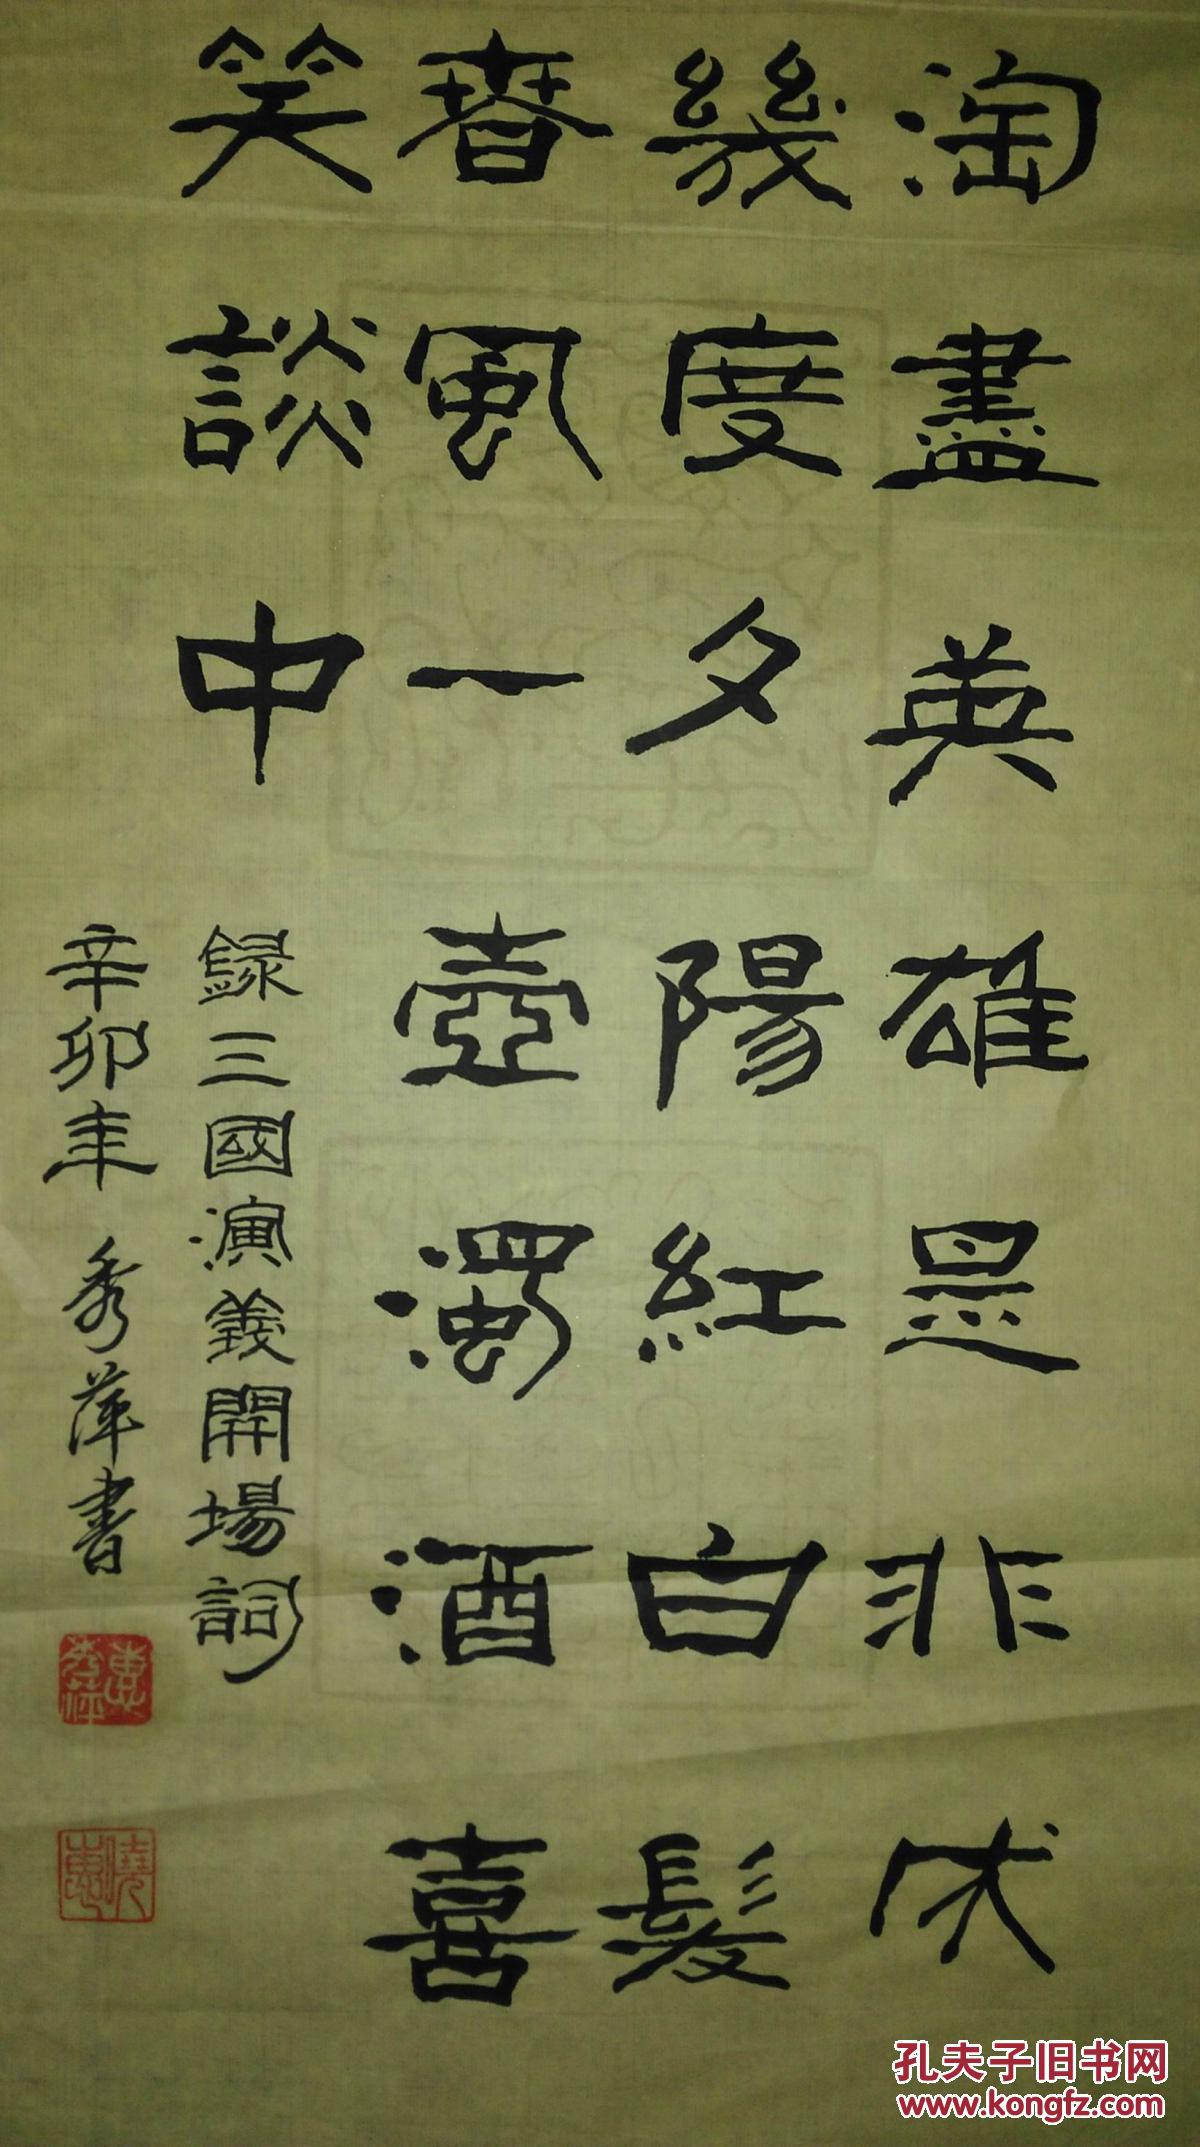 淘盡英雄是非成
幾度夕陽紅白髮
春風一壺濁酒喜
笑談中
録三國演義開場詞
辛卯年 秀萍書
孔夫子旧书网
www.kongfz.com